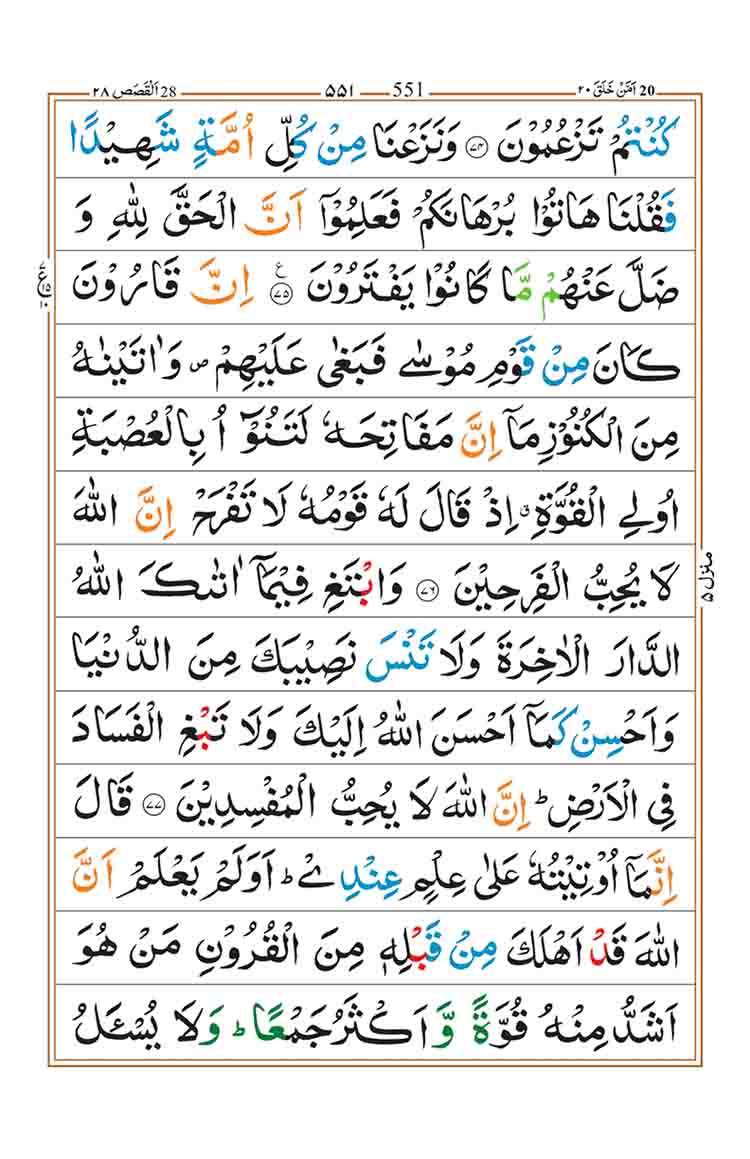 20 اَمَّنْ خَلَقَ ٢٠ 551 ۵۵۱ 28 اَلْقَصَص ٢٨
كُنْتُمْ تَزْعُمُوْنَ ﴿۷۴﴾ وَنَزَعْنَا مِنْ كُلِّ اُمَّةٍ شَهِيْدًا
فَقُلْنَا هَاتُوْا بُرْهَانَكُمْ فَعَلِمُوْۤا اَنَّ الْحَقَّ لِلّٰهِ وَ
ضَلَّ عَنْهُمْ مَّا كَانُوْا يَفْتَرُوْنَ ﴿۷۵﴾ ع اِنَّ قَارُوْنَ
كَانَ مِنْ قَوْمِ مُوْسٰى فَبَغٰى عَلَيْهِمْ ۪ وَاٰتَيْنٰهُ
مِنَ الْكُنُوْزِ مَاۤ اِنَّ مَفَاتِحَهٗ لَتَنُوْٓاُ بِالْعُصْبَةِ
اُولِى الْقُوَّةِ ۗ اِذْ قَالَ لَهٗ قَوْمُهٗ لَا تَفْرَحْ اِنَّ اللّٰهَ
لَا يُحِبُّ الْفَرِحِيْنَ ﴿۷۶﴾ وَابْتَغِ فِيْمَاۤ اٰتٰىكَ اللّٰهُ
الدَّارَ الْاٰخِرَةَ وَلَا تَنْسَ نَصِيْبَكَ مِنَ الدُّنْيَا
وَاَحْسِنْ كَمَاۤ اَحْسَنَ اللّٰهُ اِلَيْكَ وَلَا تَبْغِ الْفَسَادَ
فِى الْاَرْضِ ؕ اِنَّ اللّٰهَ لَا يُحِبُّ الْمُفْسِدِيْنَ ﴿۷۷﴾ قَالَ
اِنَّمَاۤ اُوْتِيْتُهٗ عَلٰى عِلْمٍ عِنْدِىْ ؕ اَوَلَمْ يَعْلَمْ اَنَّ
اللّٰهَ قَدْ اَهْلَكَ مِنْ قَبْلِهٖ مِنَ الْقُرُوْنِ مَنْ هُوَ
اَشَدُّ مِنْهُ قُوَّةً وَّاَكْثَرُ جَمْعًا ؕ وَلَا يُسْـَٔلُ
منزل ۵